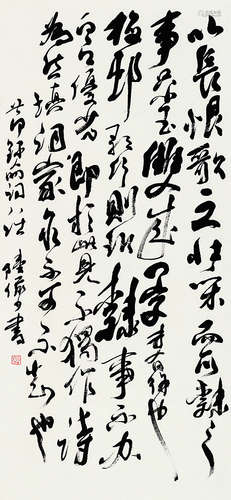 以長恨歌之壯采而所隸之
事只小玉雙成四字才有餘也
梅邨歌行則非隸事不办
白吳優劣即於此見不獨作詩
為然填詞家亦不可不知也
詞 書